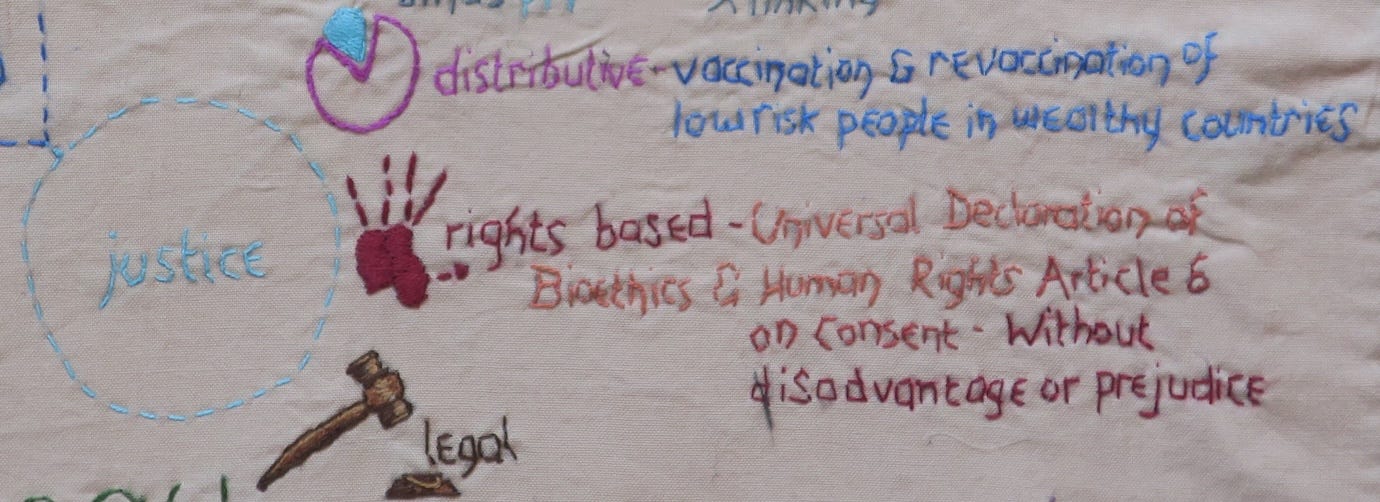 distributive - vaccination & revaccination of
low risk people in wealthy countries
justice
rights based - Universal Declaration of
Bioethics & Human Rights Article 6
on Consent - Without
disadvantage or prejudice
legal